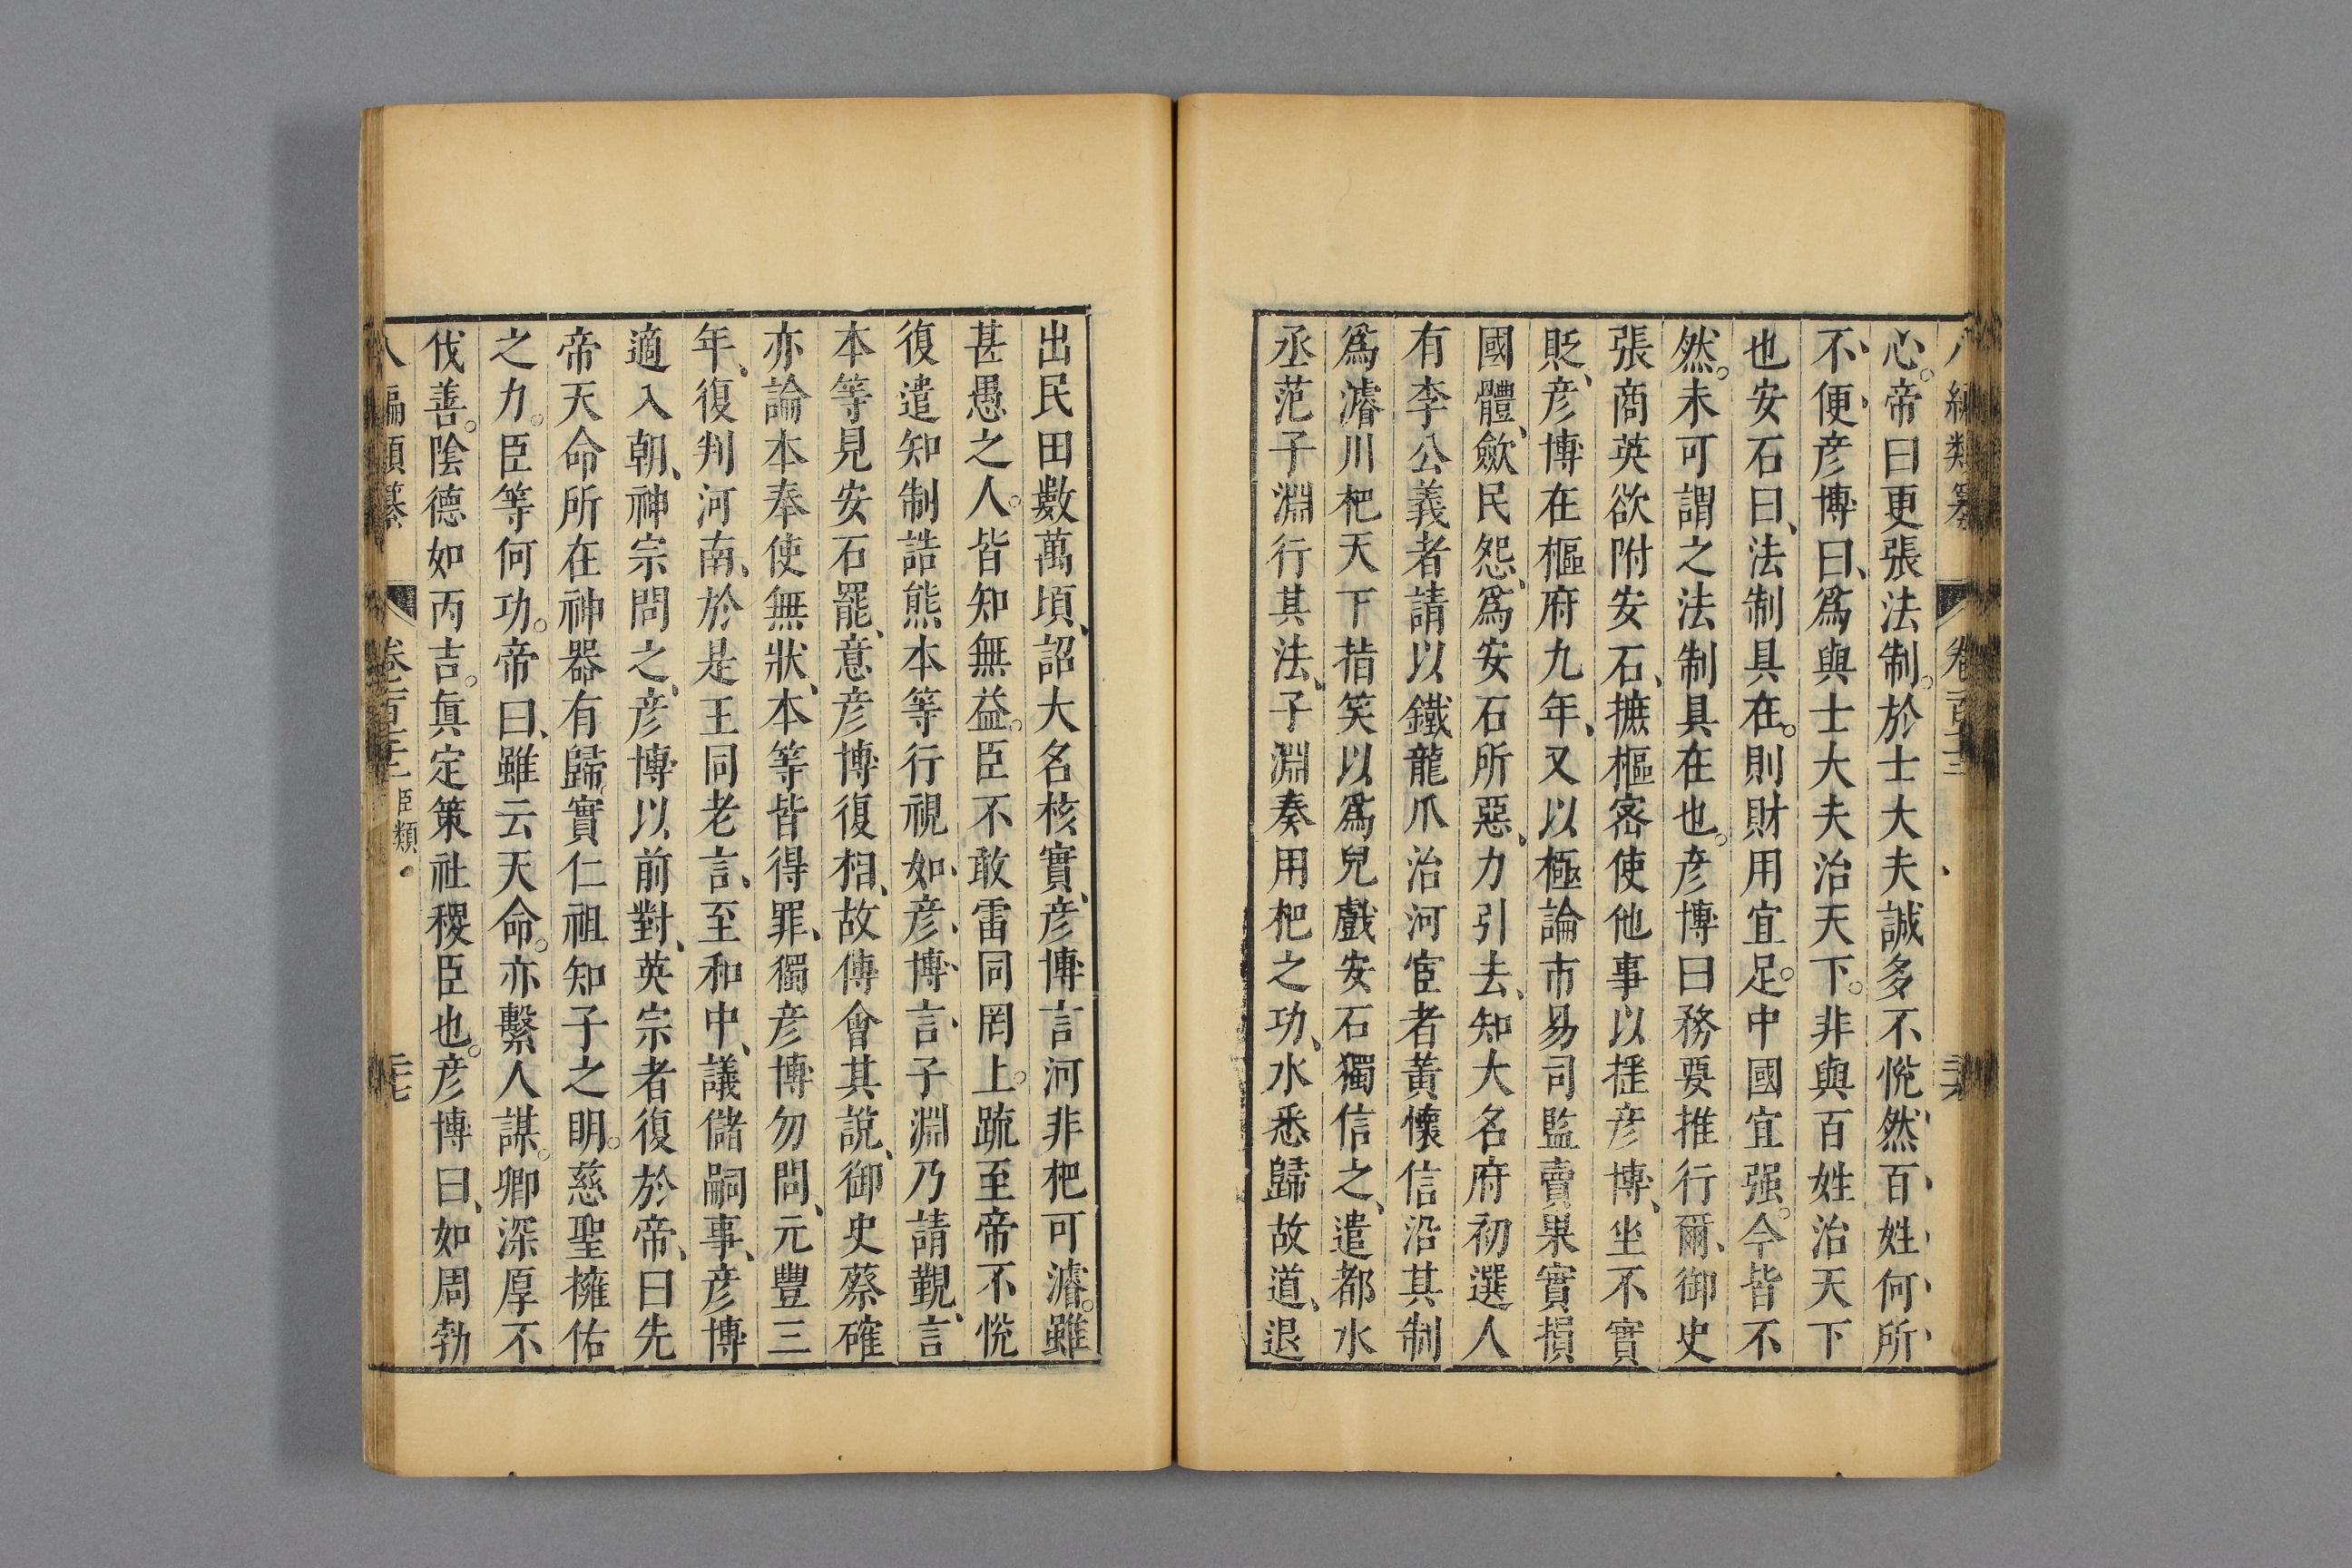 八編類纂 卷一百十三 三六
心帝曰更張法制於士大夫誠多不悅然百姓何所
不便彦博曰爲與士大夫治天下非與百姓治天下
也安石曰法制具在則財用宜足中國宜强今皆不
然未可謂之法制具在也彦博曰務要推行爾御史
張商英欲附安石摭樞密使他事以搖彦博坐不實
貶彦博在樞府九年又以極論市易司監賣果實損
國體歛民怨爲安石所惡力引去知大名府初選人
有李公義者請以鐵龍爪治河宦者黃懷信沿其制
爲濬川杷天下指笑以爲兒戲安石獨信之遣都水
丞范子淵行其法子淵奏用杷之功水悉歸故道退
出民田數萬頃詔大名核實彦博言河非杷可濬雖
甚愚之人皆知無益臣不敢雷同罔上疏至帝不悅
復遣知制誥熊本等行視如彦博言子淵乃請覲言
本等見安石罷意彦博復相故傅會其說御史蔡確
亦論本奉使無狀本等皆得罪獨彦博勿問元豐三
年復判河南於是王同老言至和中議儲嗣事彦博
適入朝神宗問之彦博以前對英宗者復於帝曰先
帝天命所在神器有歸實仁祖知子之明慈聖擁佑
之力臣等何功帝曰雖云天命亦繫人謀卿深厚不
伐善陰德如丙吉真定策社稷臣也彦博曰如周勃
八編類纂 臣類 三七